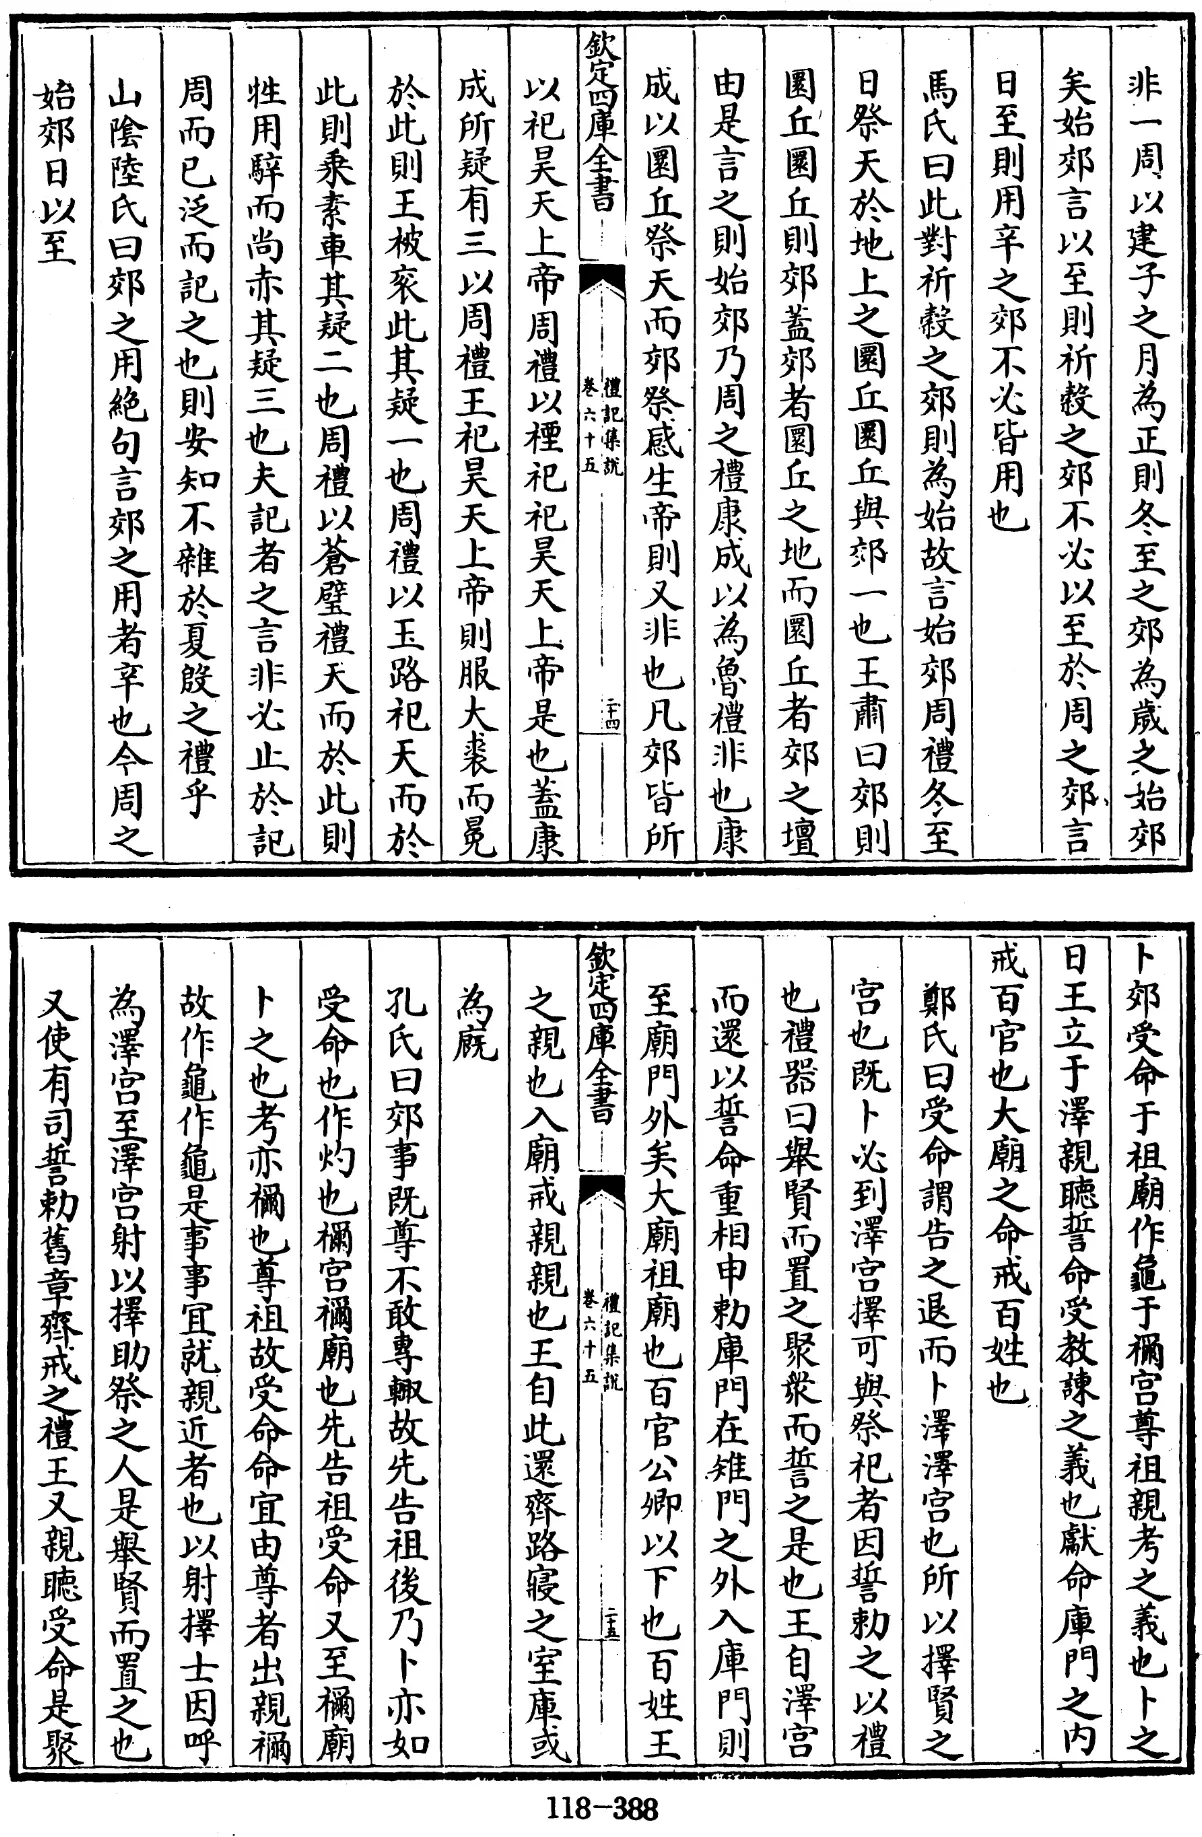 非一周以建子之月為正則冬至之郊為歲之始郊
矣始郊言以至則祈穀之郊不必以至於周之郊言
日至則用辛之郊不必皆用也
馬氏曰此對祈穀之郊則為始故言始郊周禮冬至
日祭天於地上之圜丘圜丘與郊一也王肅曰郊則
圜丘圜丘則郊蓋郊者圜丘之地而圜丘者郊之壇
由是言之則始郊乃周之禮康成以為魯禮非也康
成以圜丘祭天而郊祭感生帝則又非也凡郊皆所
欽定四庫全書
禮記集說
卷六十五
二十四
以祀昊天上帝周禮以禋祀祀昊天上帝是也蓋康
成所疑有三以周禮王祀昊天上帝則服大裘而冕
於此則王被衮此其疑一也周禮以玉路祀天而於
此則乘素車其疑二也周禮以蒼璧禮天而於此則
牲用騂而尚赤其疑三也夫記者之言非必止於記
周而已泛而記之也則安知不雜於夏殷之禮乎
山陰陸氏曰郊之用絶句言郊之用者辛也今周之
始郊日以至
卜郊受命于祖廟作龜于禰宮尊祖親考之義也卜之
日王立于澤親聽誓命受教諫之義也獻命庫門之内
戒百官也大廟之命戒百姓也
鄭氏曰受命謂告之退而卜澤澤宮也所以擇賢之
宮也既卜必到澤宮擇可與祭祀者因誓勅之以禮
也禮器曰舉賢而置之聚衆而誓之是也王自澤宮
而還以誓命重相申勅庫門在雉門之外入庫門則
至廟門外矣大廟祖廟也百官公卿以下也百姓王
欽定四庫全書
禮記集說
卷六十五
二十五
之親也入廟戒親親也王自此還齊路寢之室庫或
為廐
孔氏曰郊事既尊不敢專輙故先告祖後乃卜亦如
受命也作灼也禰宮禰廟也先告祖受命又至禰廟
卜之也考亦禰也尊祖故受命命宜由尊者出親禰
故作龜作龜是事事宜就親近者也以射擇士因呼
為澤宮至澤宮射以擇助祭之人是舉賢而置之也
又使有司誓勅舊章齊戒之禮王又親聽受命是聚
118-388